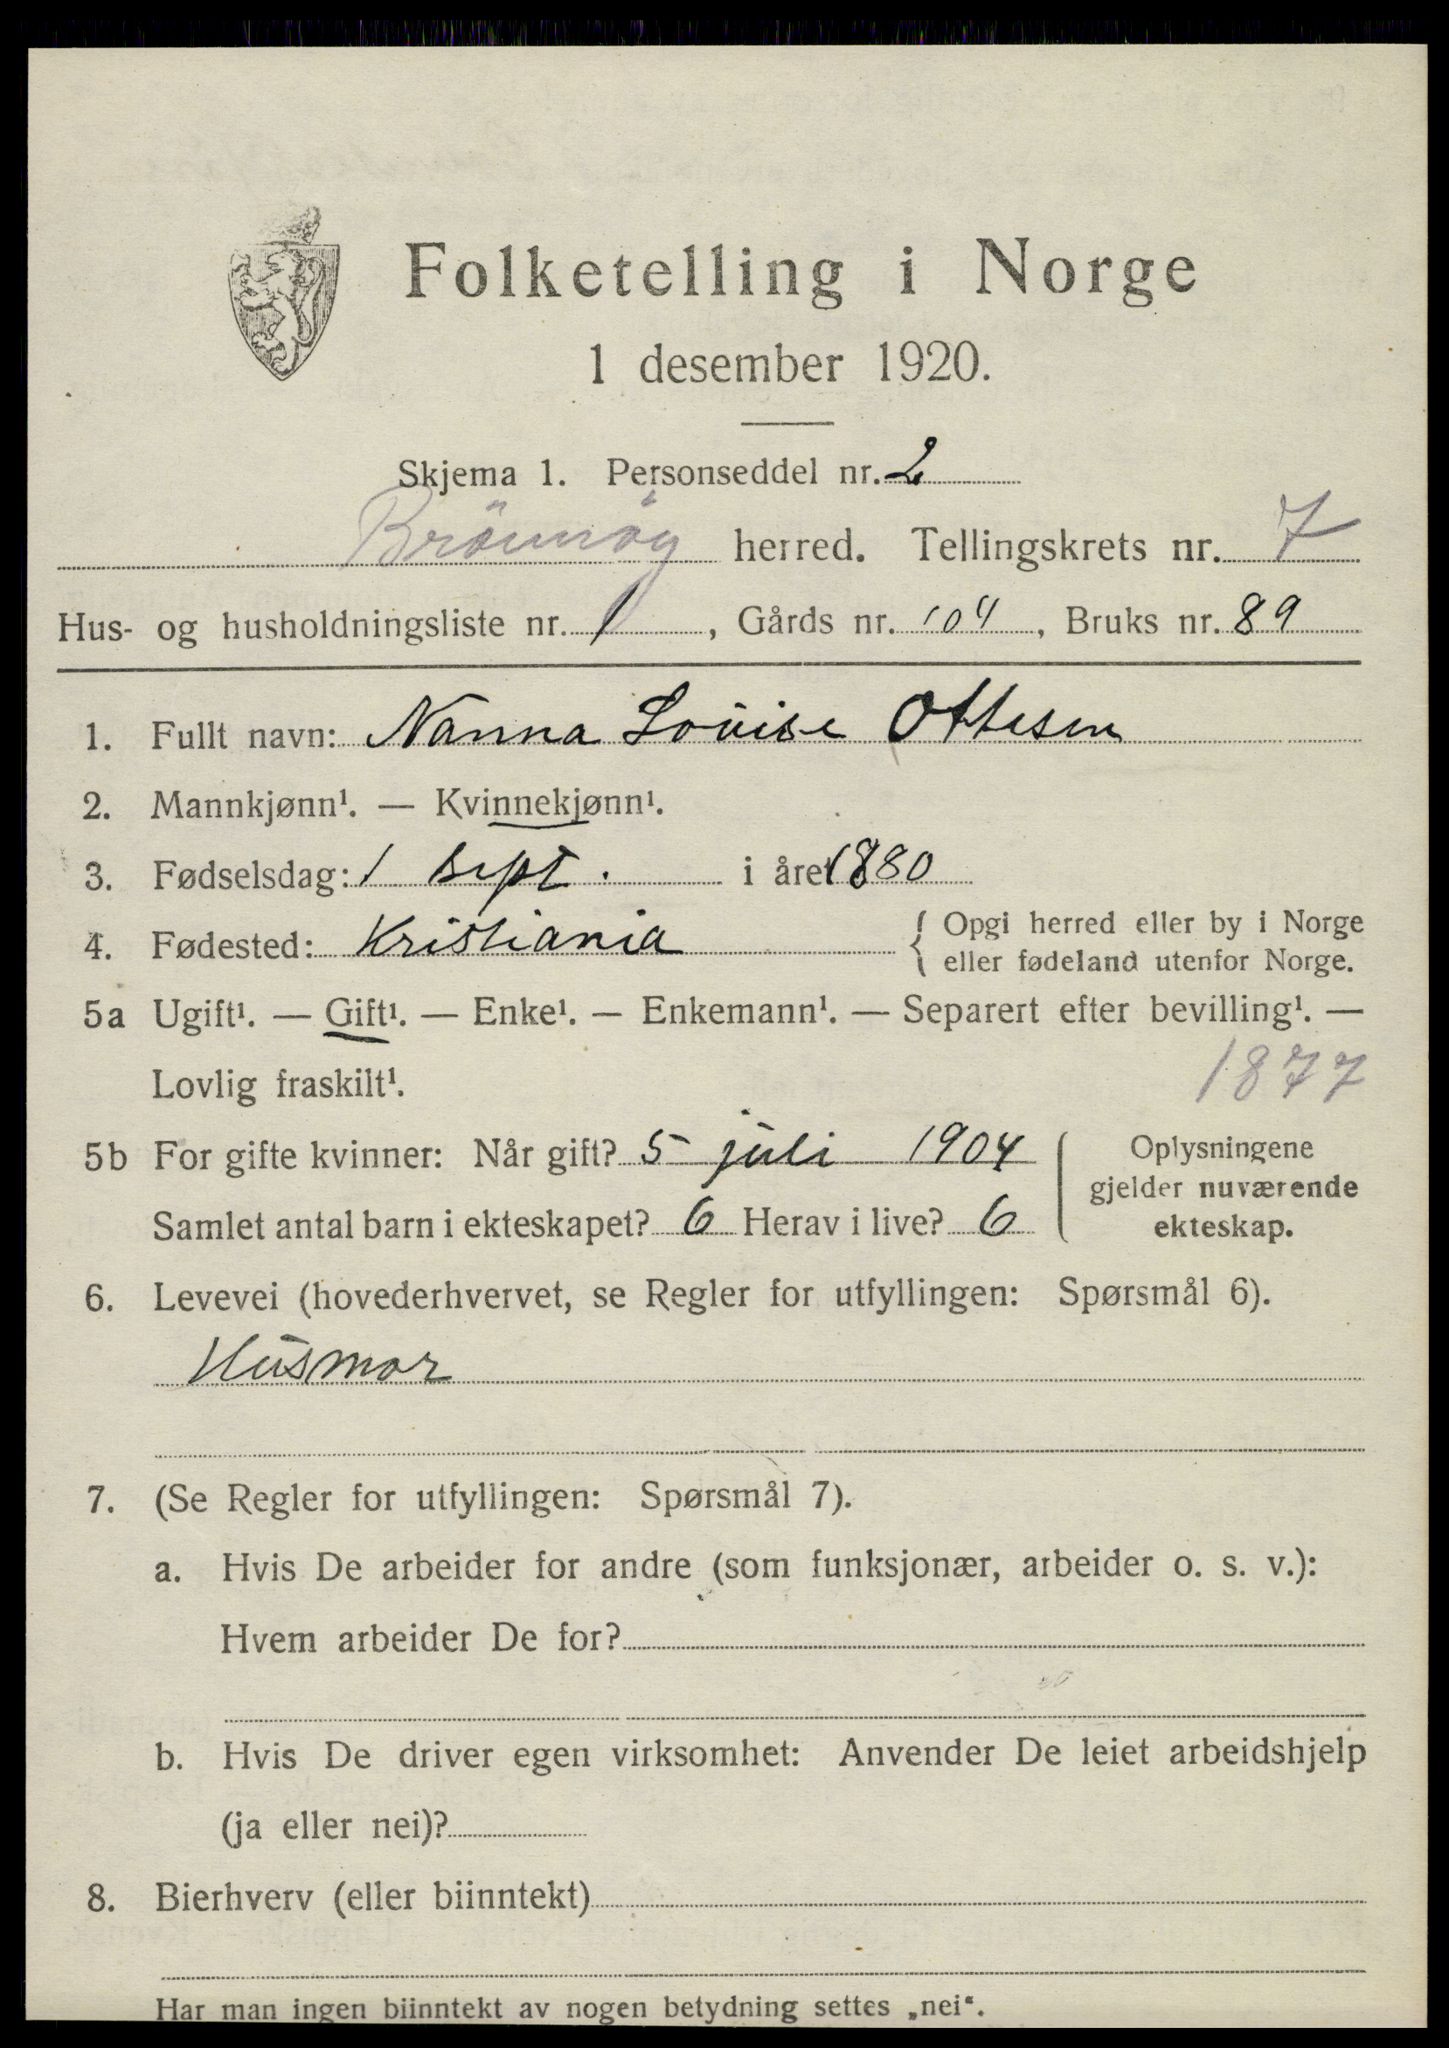 Folketelling i Norge
1 desember 1920.
Skjema 1. Personseddel nr. 2
Brönnöy herred. Tellingskrets nr. 7
Hus- og husholdningsliste nr. 1, Gårds nr. 104, Bruks nr. 89
1. Fullt navn: Nanna Louise Ottesen
2. Mannkjønn¹. — Kvinnekjønn¹.
3. Fødselsdag: 1 sept. i året 1880
4. Fødested: Kristiania { Opgi herred eller by i Norge
eller fødeland utenfor Norge.
5a Ugift¹. — Gift¹. — Enke¹. — Enkemann¹. — Separert efter bevilling¹. —
Lovlig fraskilt¹. 1877
5b For gifte kvinner: Når gift? 5 juli 1904 { Oplysningene
gjelder nuværende
Samlet antal barn i ekteskapet? 6 Herav i live? 6 ekteskap.
6. Levevei (hovederhvervet, se Regler for utfyllingen: Spørsmål 6).
Husmor
7. (Se Regler for utfyllingen: Spørsmål 7).
a. Hvis De arbeider for andre (som funksjonær, arbeider o. s. v.):
Hvem arbeider De for?
b. Hvis De driver egen virksomhet: Anvender De leiet arbeidshjelp
(ja eller nei)?
8. Bierhverv (eller biinntekt)
Har man ingen biinntekt av nogen betydning settes „nei“.